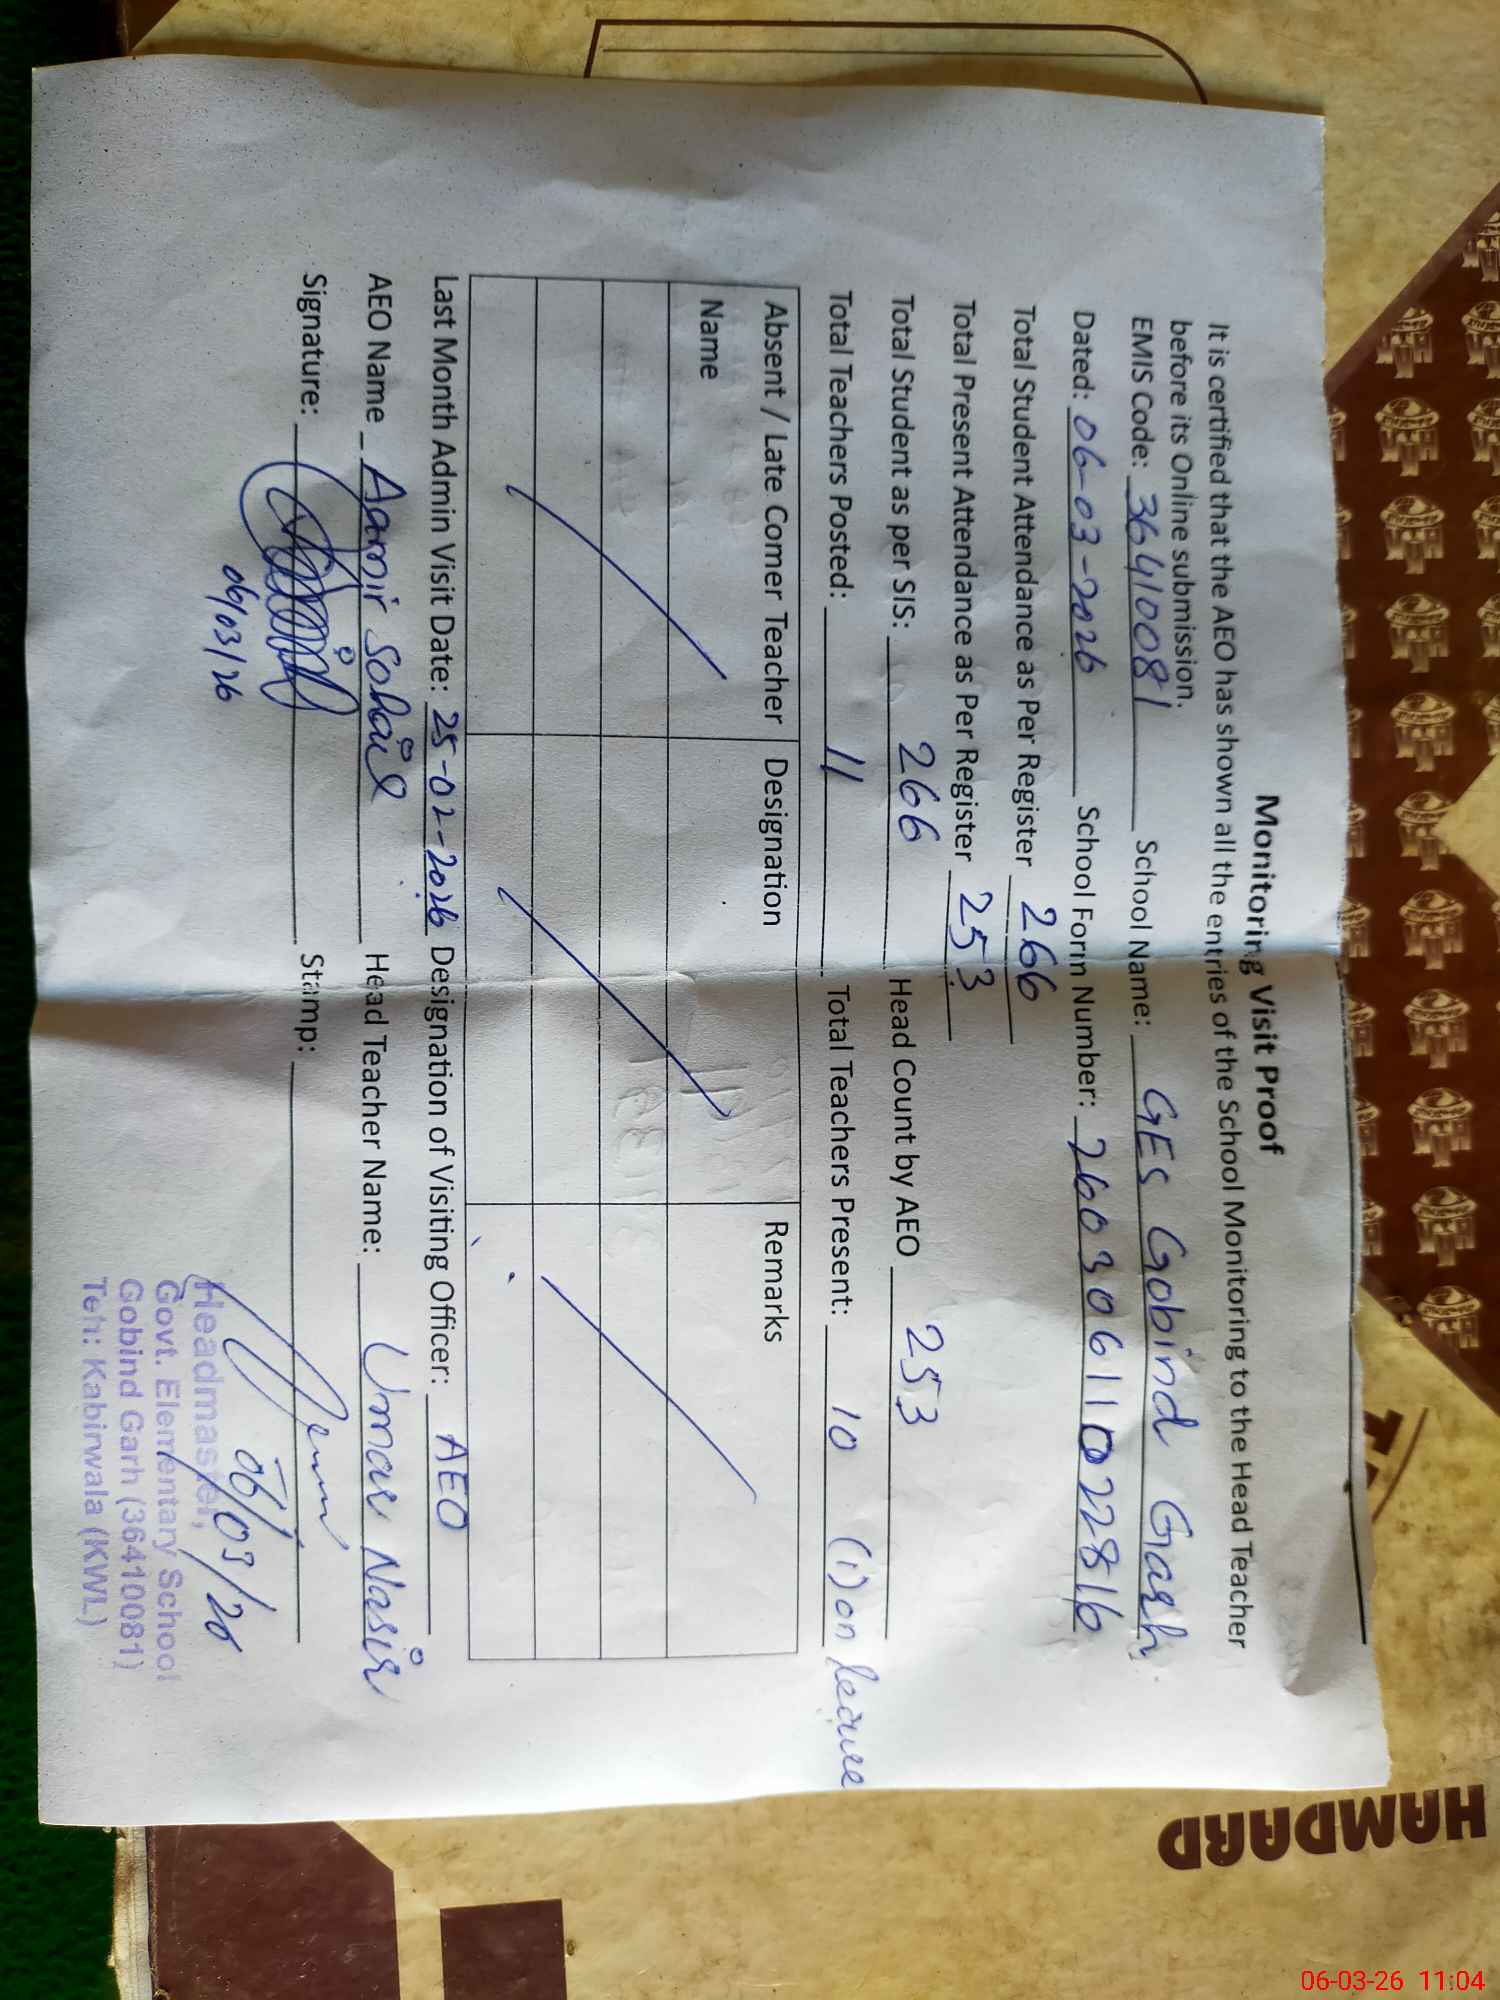 Monitoring Visit Proof
It is certified that the AEO has shown all the entries of the School Monitoring to the Head Teacher
before its Online submission.
EMIS Code: 36410081 School Name: GES Gobind Garh
Dated: 06-03-2026 School Form Number: 26030611022816
Total Student Attendance as Per Register 266
Total Present Attendance as Per Register 253
Total Student as per SIS: 266 Head Count by AEO 253
Total Teachers Posted: 11 Total Teachers Present: 10 (1) on leave
Absent / Late Comer Teacher Name Designation Remarks
Last Month Admin Visit Date: 25-02-2026 Designation of Visiting Officer: AEO
AEO Name Aamir Sohail Head Teacher Name: Umar Nasir
Signature: Stamp:
06/03/26
06/03/26
Headmaster,
Govt. Elementary School
Gobind Garh (36410081)
Teh: Kabirwala (KWL)
HAMDARD
06-03-26 11:04